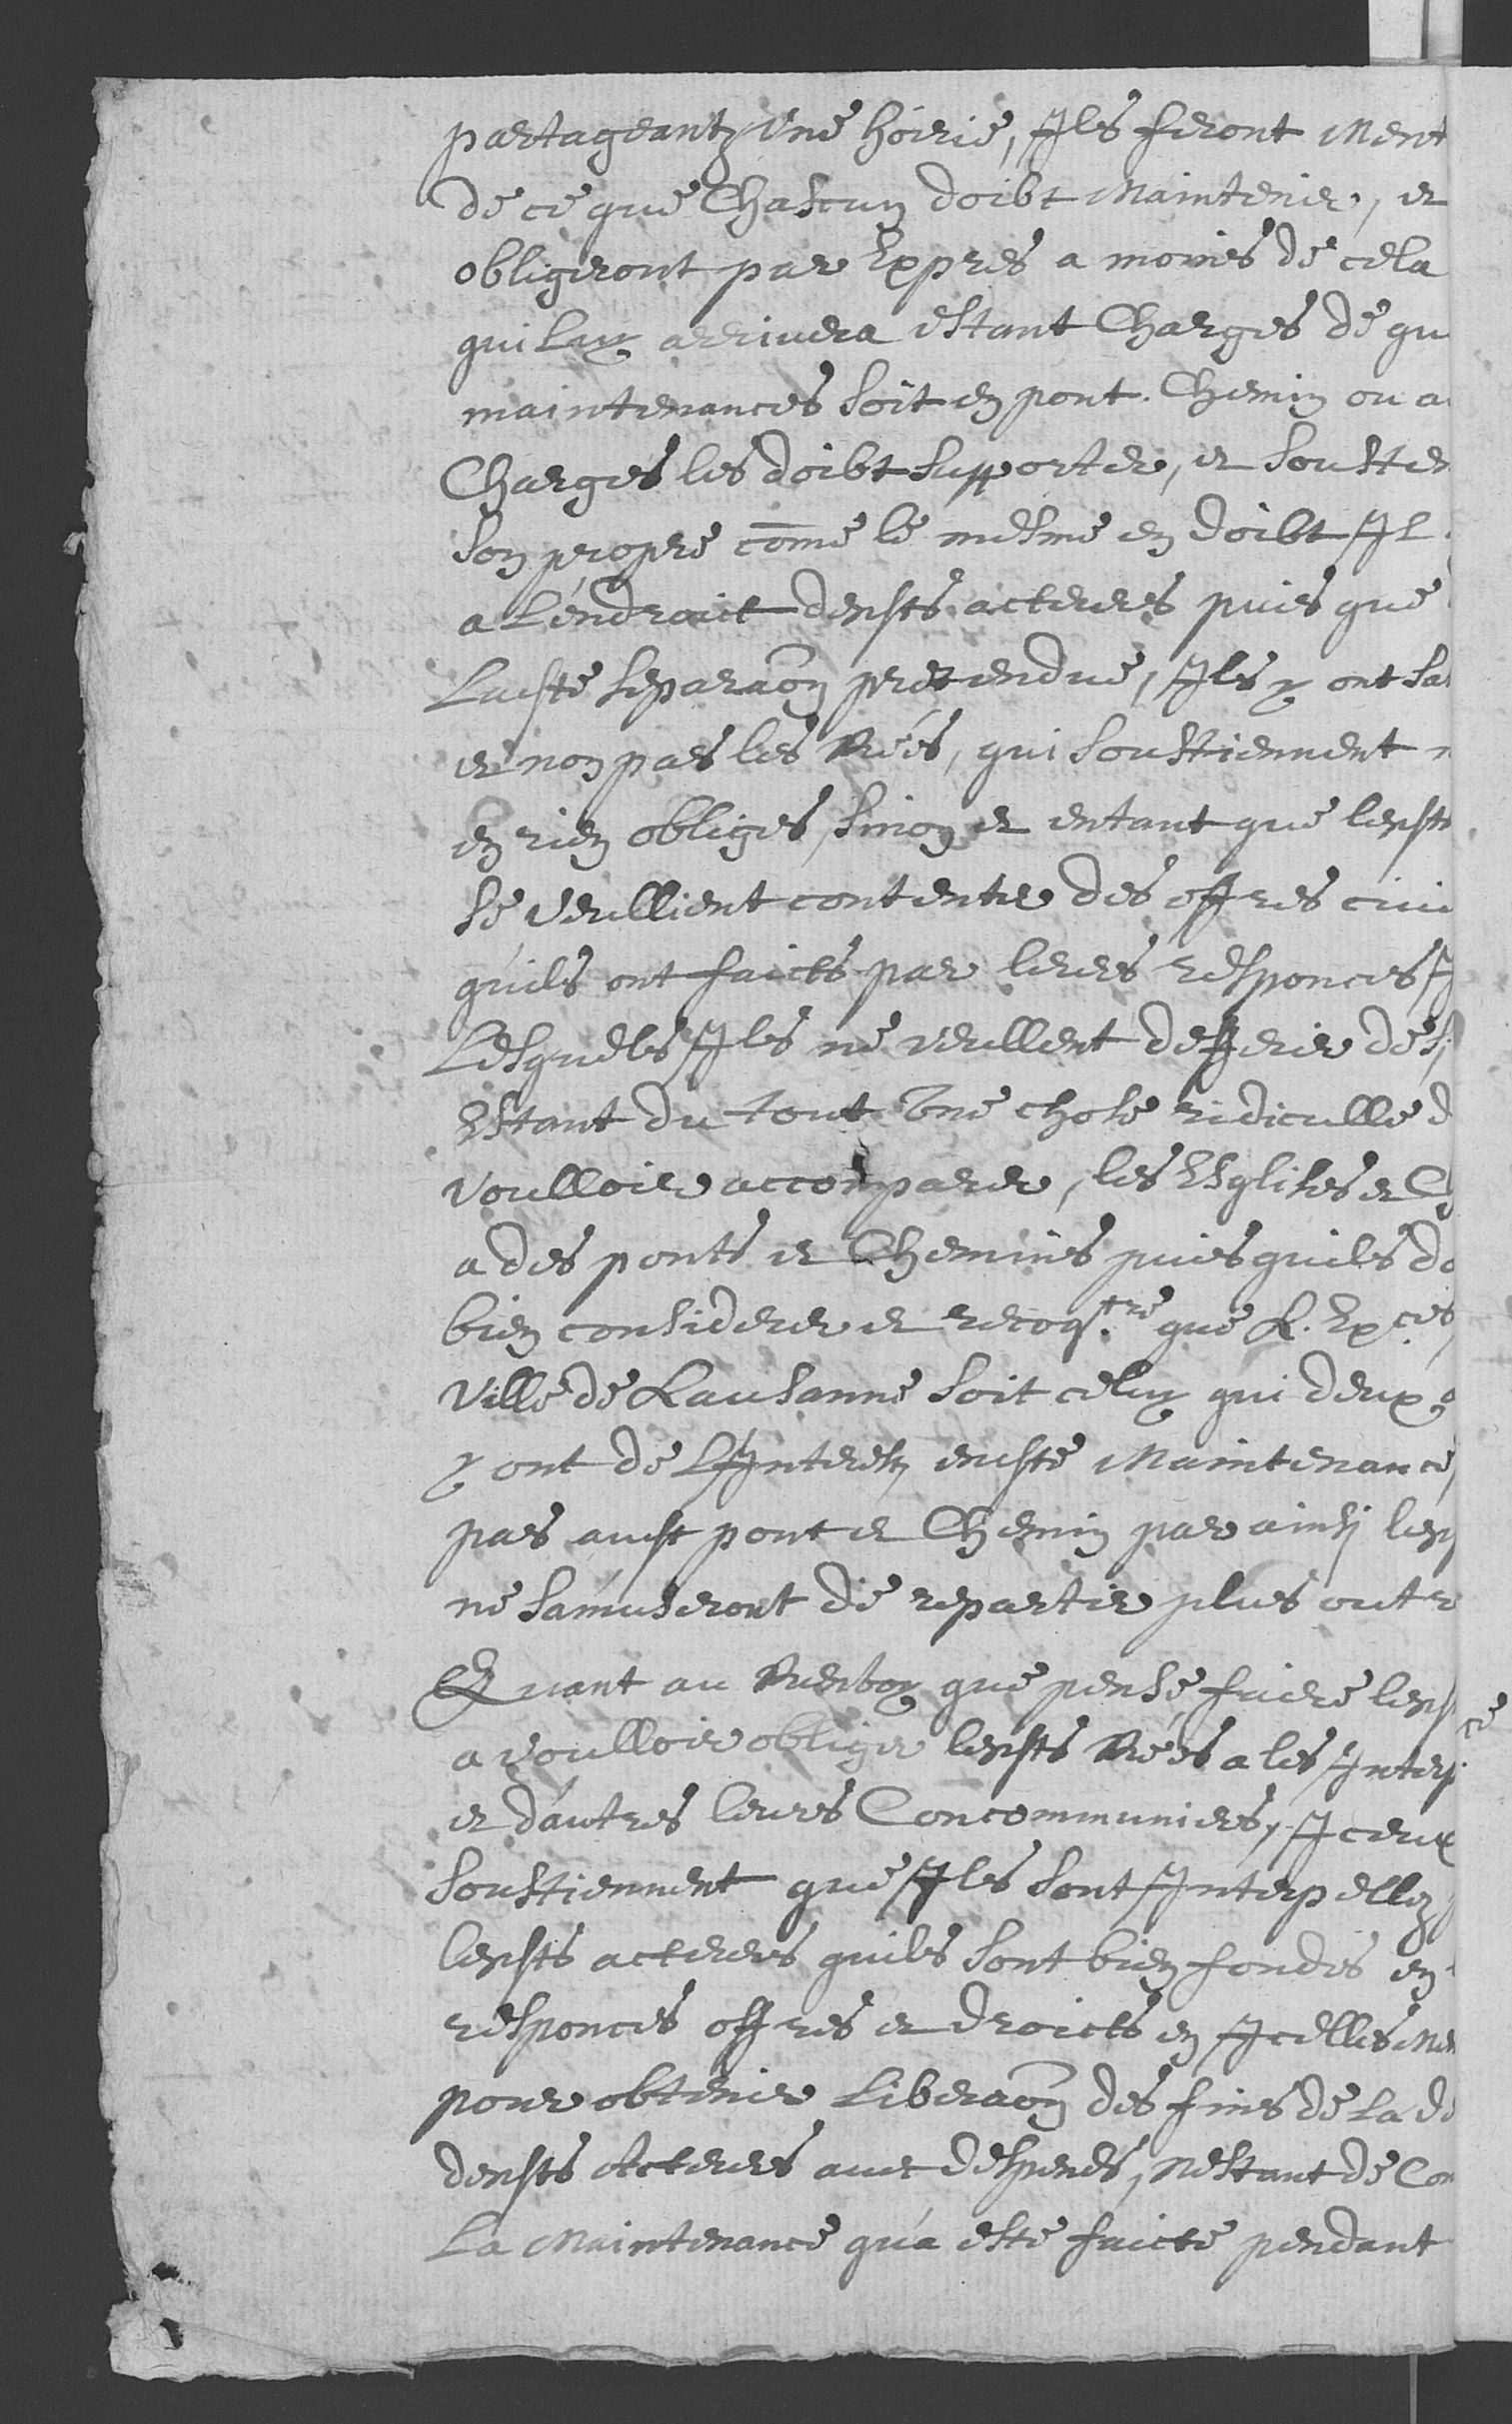 partageantz Vne hoirie, Ils feront Ment
de ce que Chascun doibt Maintenir, et
obligeront par Expres a moins de cela
qui luy arrivera estant Charges de qu
maintenances soit en pont. Chemin ou a
Charges les doibt supporter, et souster
son propre cõme le mesme en doibt Il
a lendroict denspts acteurs puis que
Ladte separaõn pretendue, Ils y ont sa
et non pas les Rées, qui soustiennent n
en rien obliges, sinon et entant que lespts
se veullient contenter des offres civi
quils ont faicts par leurs responces
Lesquels Ils ne veullent defferir des
Estant du tout Vne chose ridiculle d
voulloir accomparer, les Esglises et C
a des ponts et Chemins puis quils do
bien considerer et recoq.tre que L. Exces
Ville de Lausanne soit celuy qui deux
y ont de LInterest en cste Maintenance,
pas aust pont et Chemin par ainsj lesp
ne samuseront de repartir plus outr
Quant au Renvoy que pense faire lesp
a voulloir obliger lespts Rées a les Interp
et dautres leurs Concommuniers, Iceux
soustiennent que Ils sont Interpellez
lespts acteurs quils sont bien fondes en
responces offres et droicts en Icelles Men
pour obtenir Liberaõn des fins de la de
denspts Acteurs avec despends, Nestant de Con
La Maintenance qua este faicte pendant